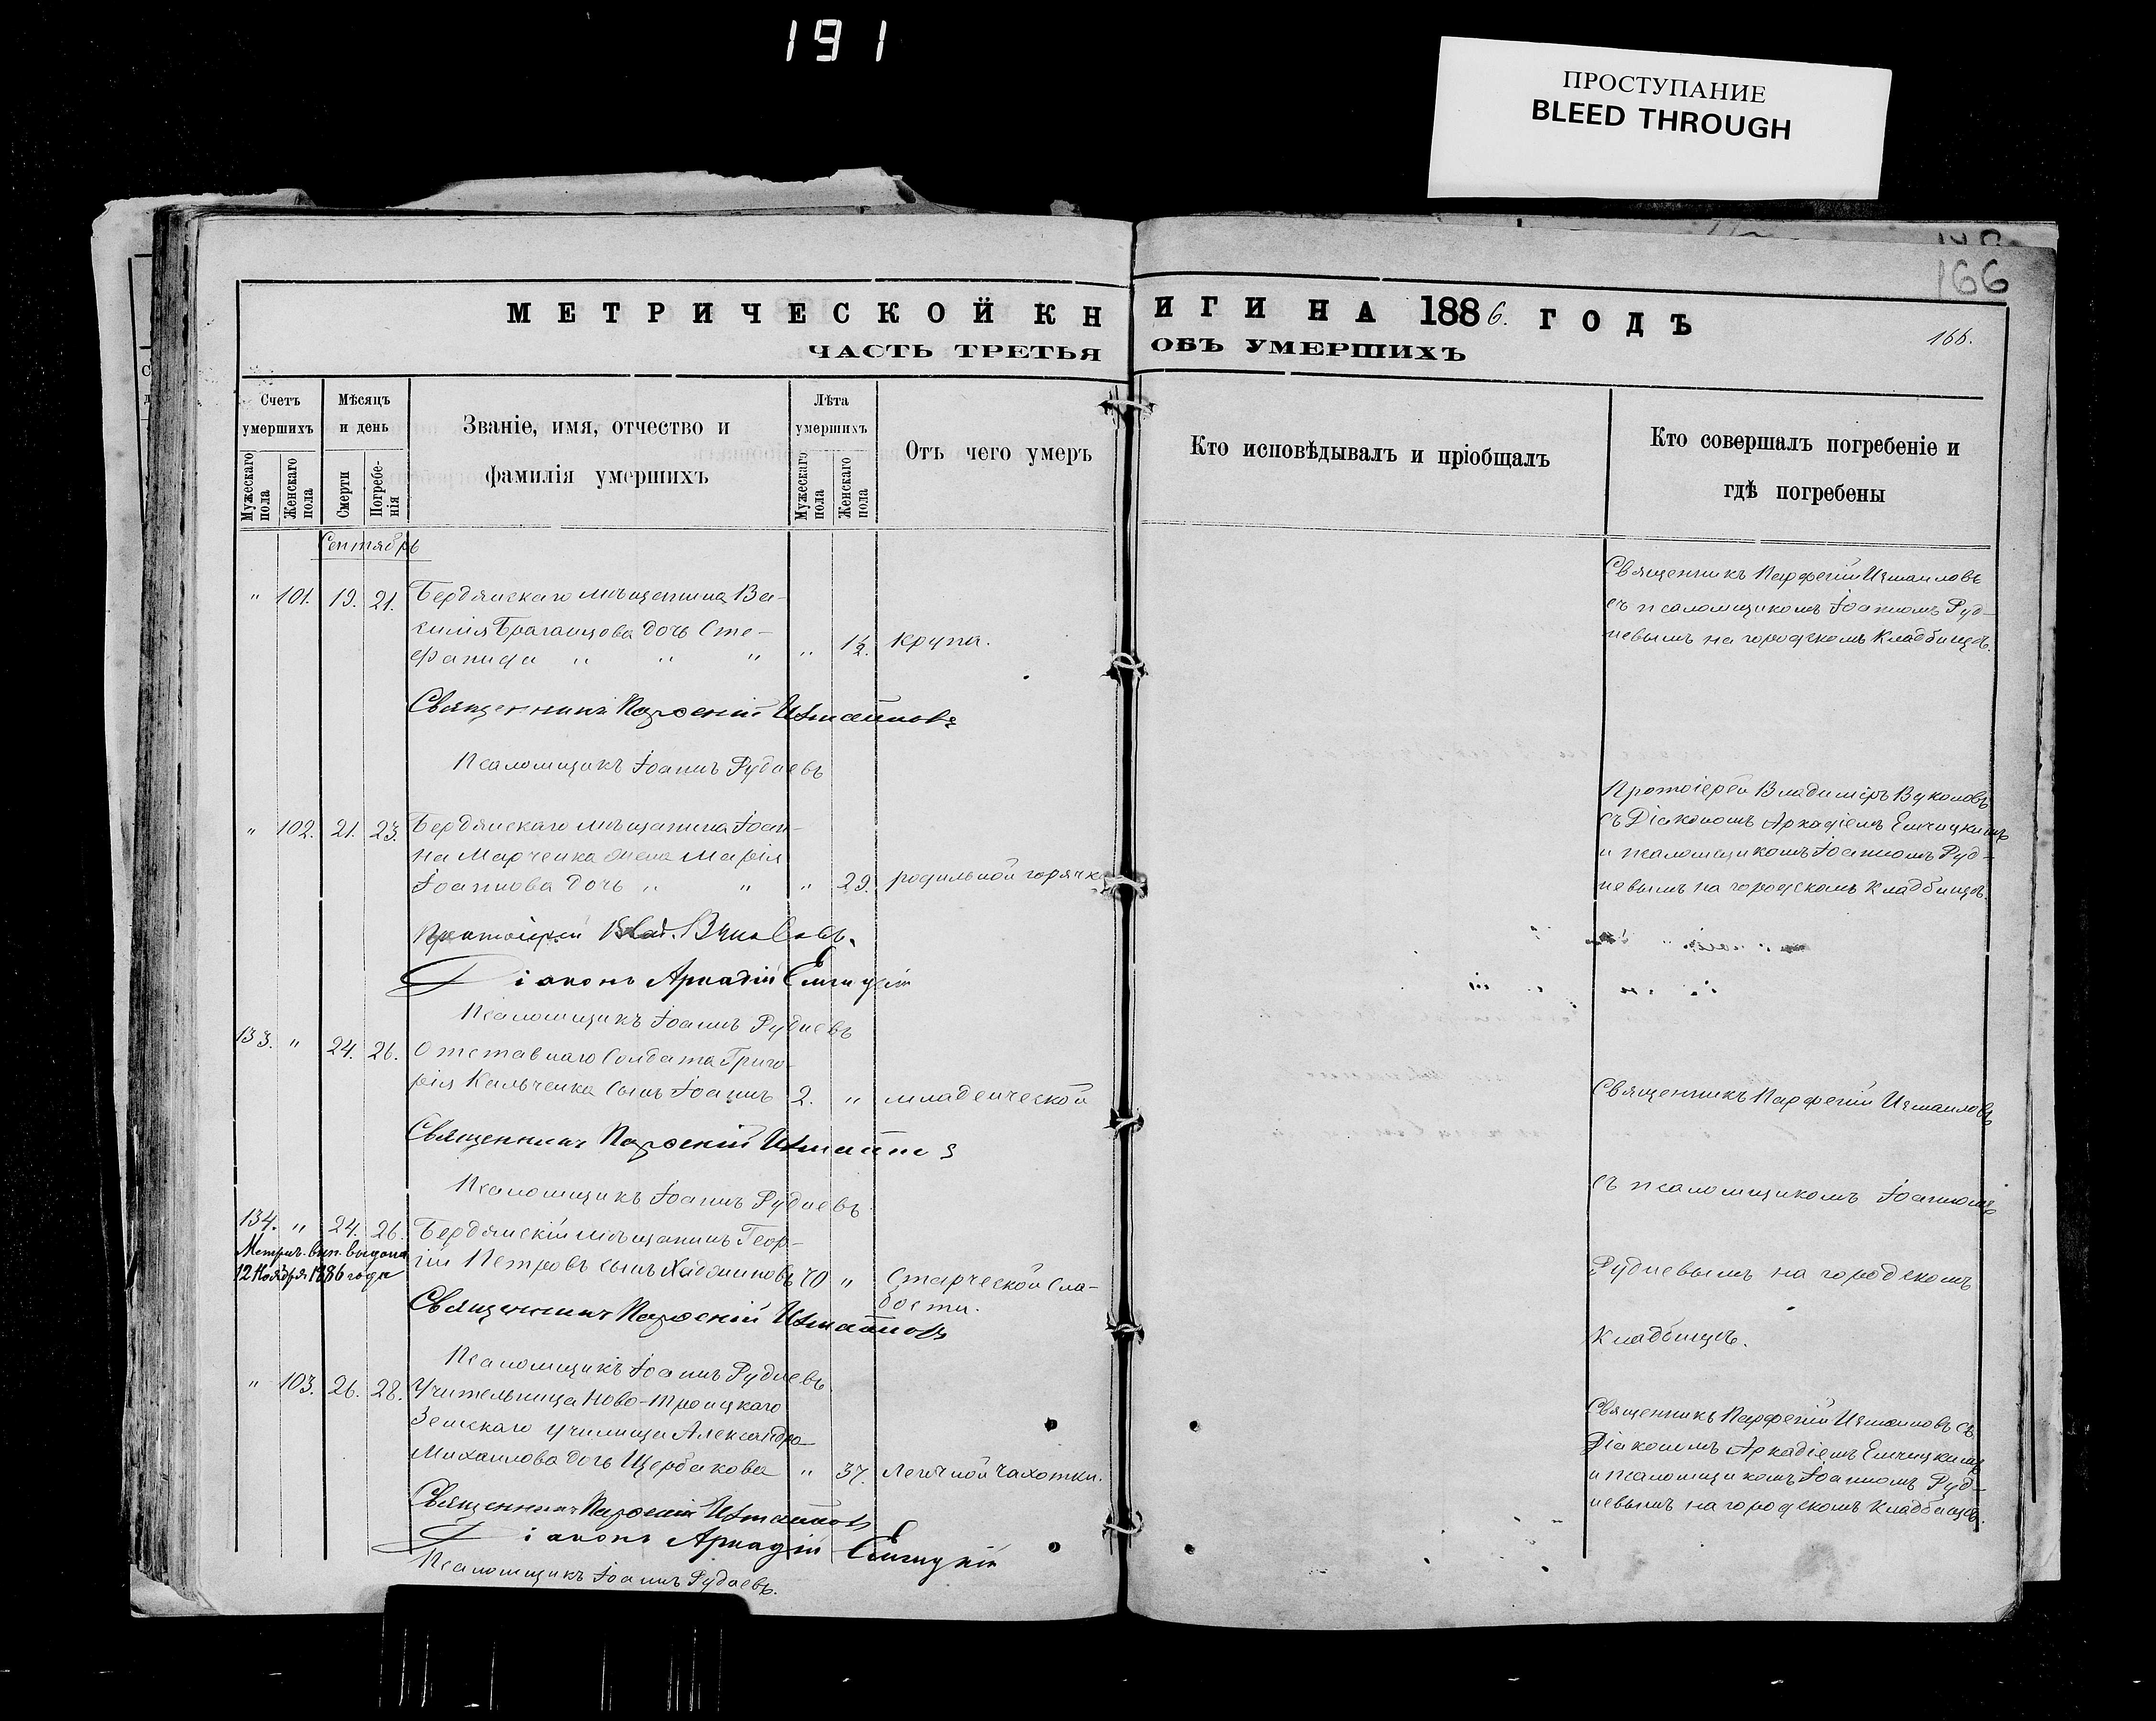 191
ПРОСТУПАНИЕ
BLEED THROUGH
166
МЕТРИЧЕСКОЙ КНИГИ НА 1886. ГОДЪ
ЧАСТЬ ТРЕТЬЯ ОБЪ УМЕРШИХЪ
166.
Счетъ умершихъ
Мужескаго пола
Женскаго пола
Мѣсяцъ и день
Смерти
Погребенія
Званіе, имя, отчество и
фамилія умершихъ
Лѣта умершихъ
Мужескаго пола
Женскаго пола
Отъ чего умеръ
Кто исповѣдывалъ и пріобщалъ
Кто совершалъ погребеніе и
гдѣ погребены
Сентябрь
" 101. 19. 21. Бердянскаго мѣщанина Ва-
силія Браганцова дочь Сте-
фанида " " " " 1½. крупа.
Священникъ Парѳеній Измаиловъ
съ псаломщикомъ Іоанномъ Руд-
невымъ на городскомъ Кладбищѣ.
Священникъ Парѳеній Измаиловъ
Псаломщикъ Іоаннъ Рудневъ
" 102. 21. 23. Бердянскаго мѣщанина Іоан-
на Марченка жена Марія
Іоаннова дочь " " " 29. родильной горячк
Протоіерей Владиміръ Вуколовъ
съ Діакономъ Аркадіемъ
и псаломщикомъ Іоанномъ Руд-
невымъ на городскомъ Кладбищѣ.
Протоіерей Влад. Вуколовъ.
Діаконъ Аркадій
Псаломщикъ Іоаннъ Рудневъ
133. " 24. 26. Отставнаго Солдата Григо-
рія Кальченка сынъ Іоаннъ 2. " младенческой
Священникъ Парѳеній Измаиловъ
Священникъ Парѳеній Измаиловъ
Псаломщикъ Іоаннъ Рудневъ
съ псаломщикомъ Іоанномъ
134. " 24. 26. Бердянскій мѣщанинъ Геор-
гій Петровъ сынъ 70 " Старческой Сла-
бости.
Метрич. вып. выдана
12 Ноября 1886 года
Рудневымъ на городскомъ
Кладбищѣ.
Священникъ Парѳеній Измаиловъ
Псаломщикъ Іоаннъ Рудневъ
" 103. 26. 28. Учительница Ново-Троицкаго
Земскаго училища Александра
Михаилова дочь Щербакова " 37. Легичной чахотки.
Священникъ Парѳеній Измаиловъ съ
Діакономъ Аркадіемъ
и псаломщикомъ Іоанномъ Руд-
невымъ на городскомъ Кладбищѣ.
Священникъ Парѳеній Измаиловъ
Діаконъ Аркадій
Псаломщикъ Іоаннъ Рудневъ.